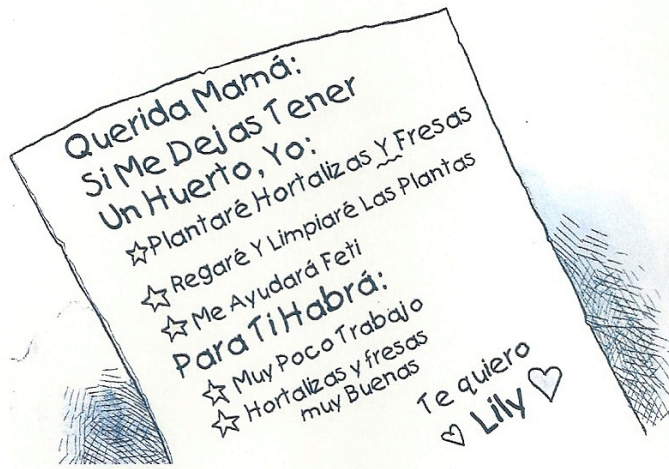 Querida Mamá:
Si Me Dejas Tener
Un Huerto, Yo:
Plantaré Hortalizas Y Fresas
Regaré Y Limpiaré Las Plantas
Me Ayudará Feti
Para Ti Habrá:
Muy Poco Trabajo
Hortalizas y fresas
muy Buenas
Te quiero
Lily